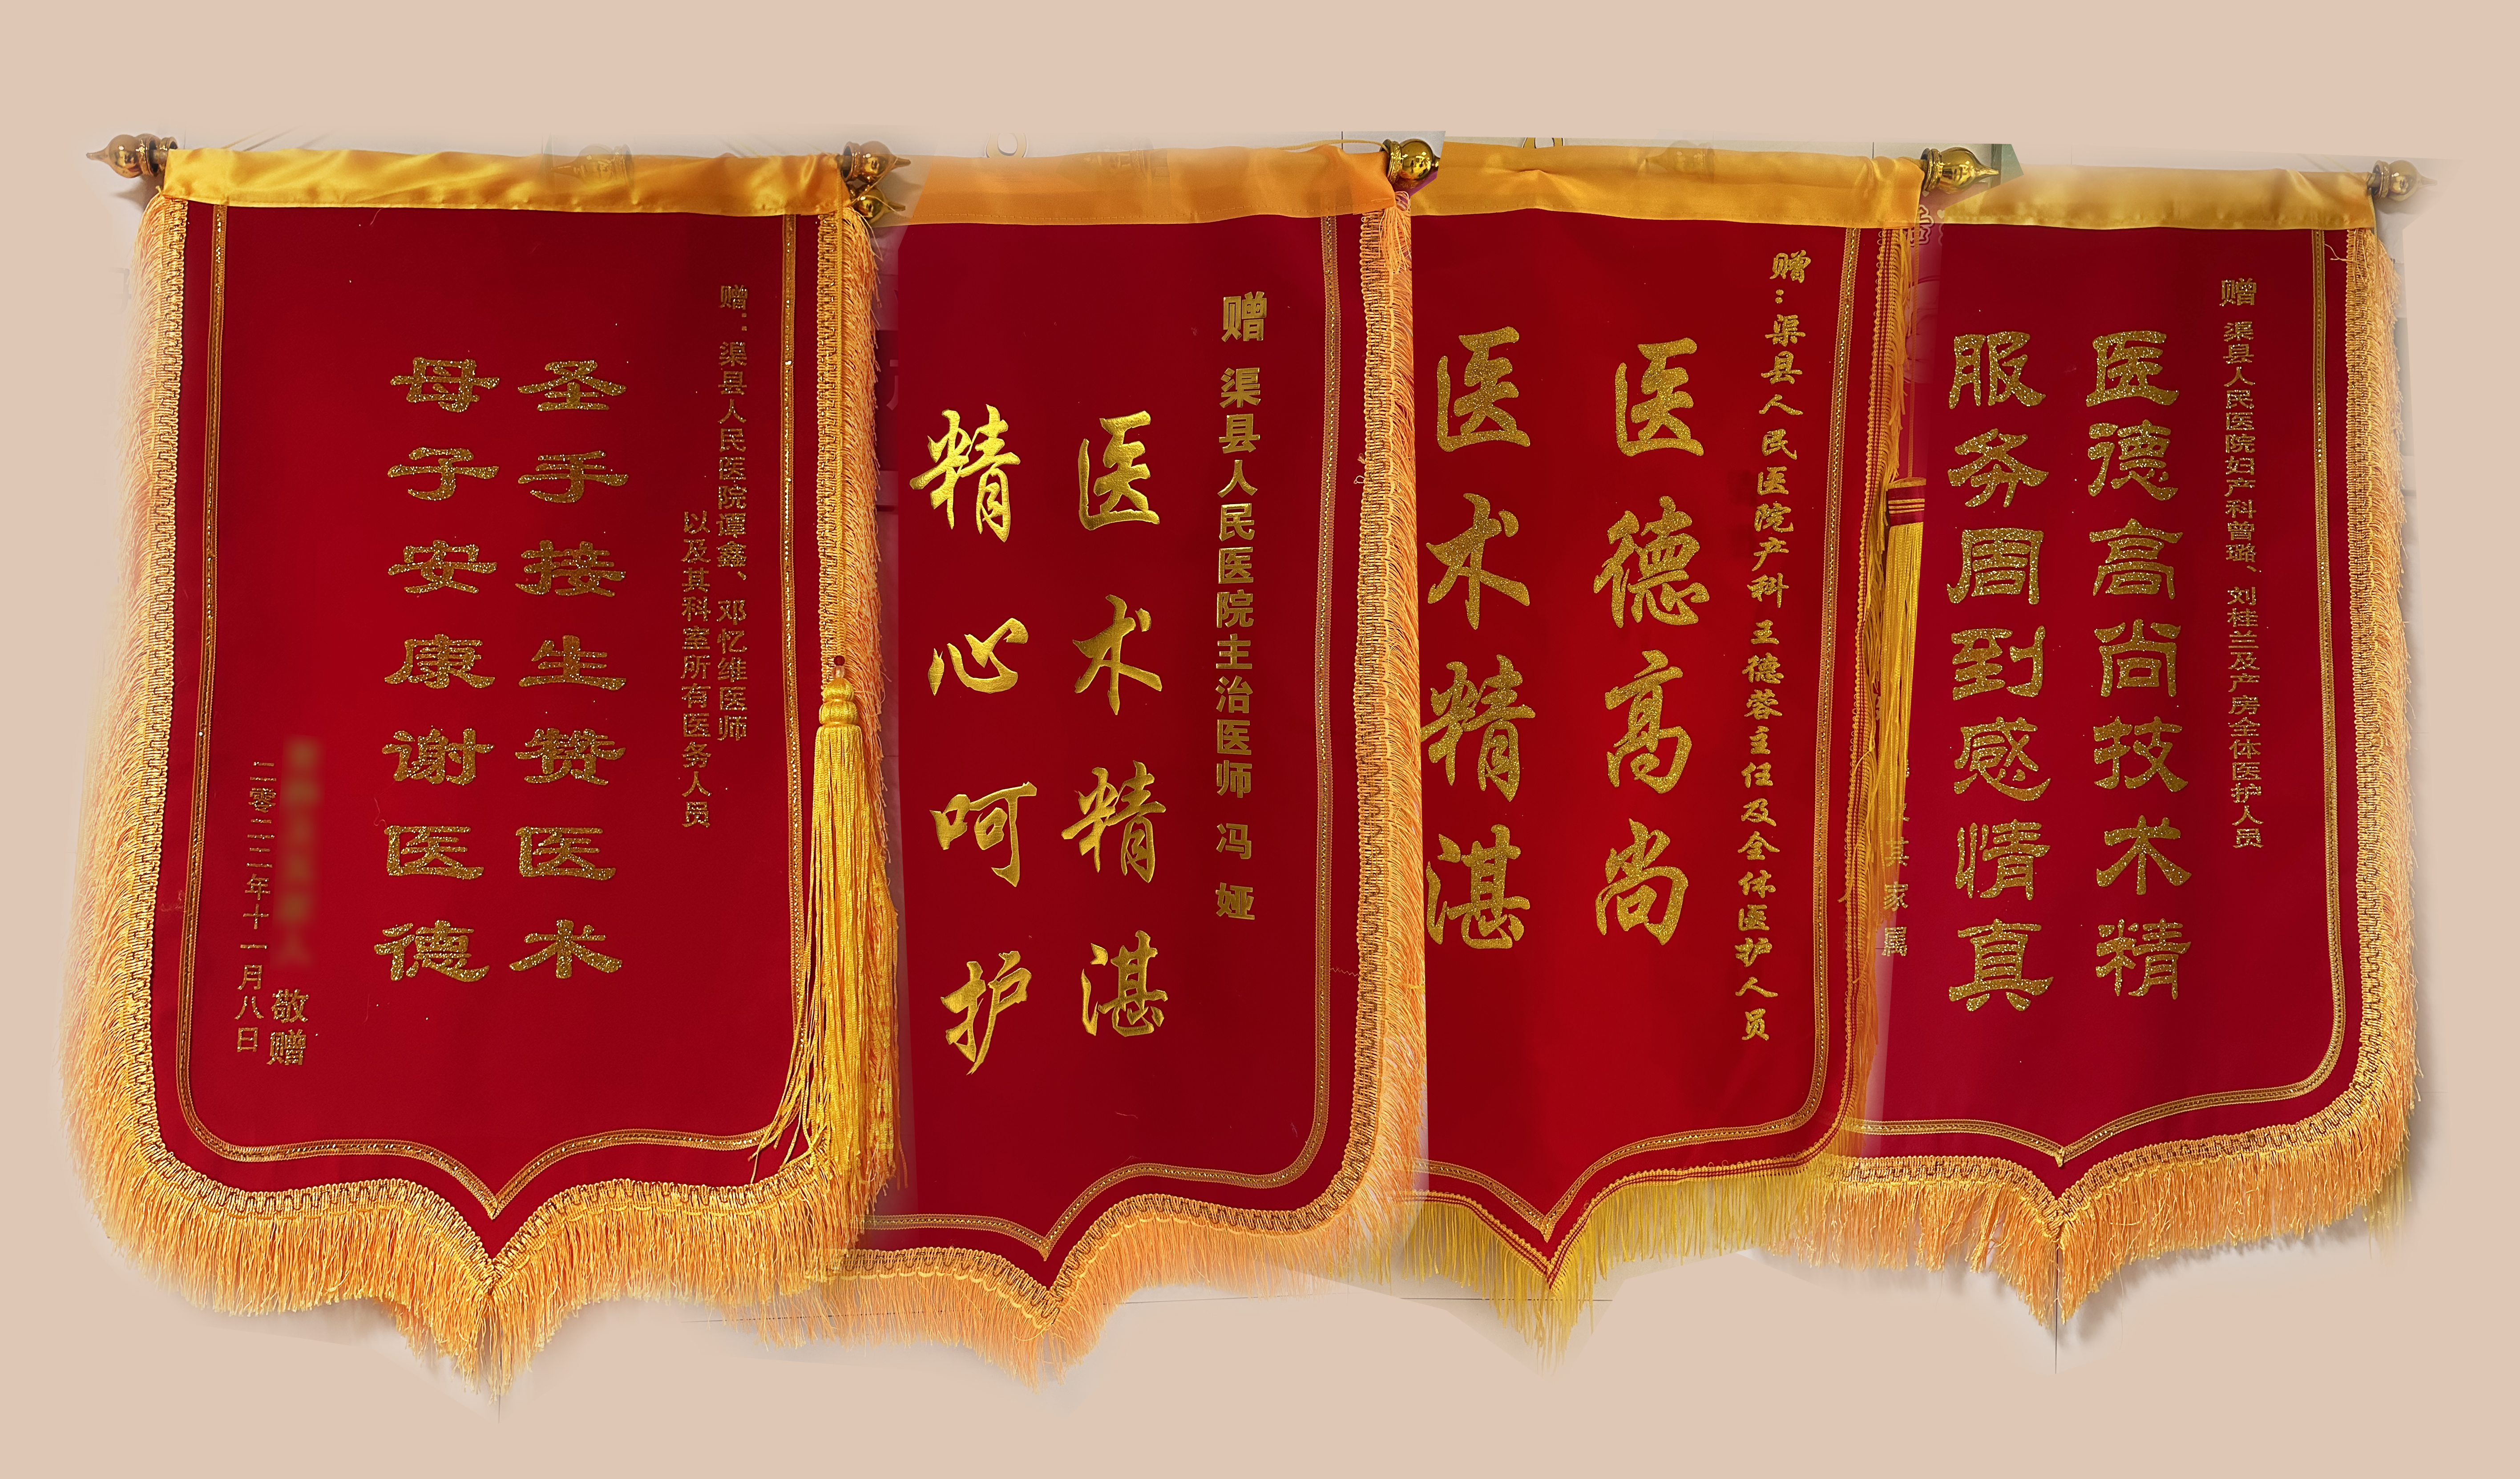 赠：渠县人民医院谭鑫、邓忆维医师
以及其科室所有医务人员
圣手接生赞医术
母子安康谢医德
敬赠
二零二二年十一月八日
赠 渠县人民医院主治医师 冯娅
医术精湛
精心呵护
赠：渠县人民医院产科王德蓉主任及全体医护人员
医德高尚
医术精湛
赠 渠县人民医院妇产科曾璐、刘桂兰及产房全体医护人员
医德高尚技术精
服务周到感情真
其家属